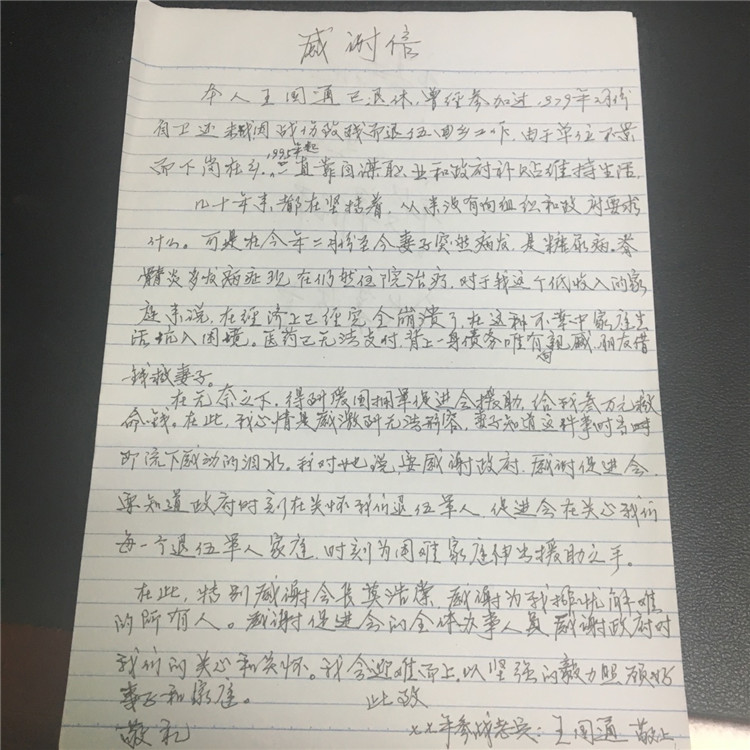 感谢信
本人王国通已退休,曾经参加过1979年2月份
自卫还击战因战伤致残而退伍回乡工作,由于单位不景
而下岗在乡.1995年起一直靠自谋职业和政府补贴维持生活,
几十年来都在坚持着,从来没有向组织和政府要求
什么。可是在今年二月份至今妻子突然病发,是糖尿病.脊
髓炎多发病症现在仍然住院治疗,对于我这个低收入的家
庭来说,在经济上已经完全崩溃了,在这种不幸中家庭生
活坑入困境。医药已无法支付,背上一身债务唯有向亲戚,朋友借
钱救妻子。
在无奈之下,得到爱国拥军促进会援助,给我叁万元救
命钱。在此,我心情是感激到无法形容,妻子知道这件事时当时
即流下感动的泪水。我对她说,要感谢政府,感谢促进会,
要知道政府时刻在关怀我们退伍军人,促进会在关心我们
每一个退伍军人家庭,时刻为困难家庭伸出援助之手。
在此,特别感谢会长莫浩棠,感谢为我排忧解难
的所有人。感谢促进会的全体办事人员,感谢政府对
我们的关心和关怀。我会迎难而上,以坚强的毅力照顾好
妻子和家庭。 此致
敬礼 七九年参战老兵:王国通 敬上